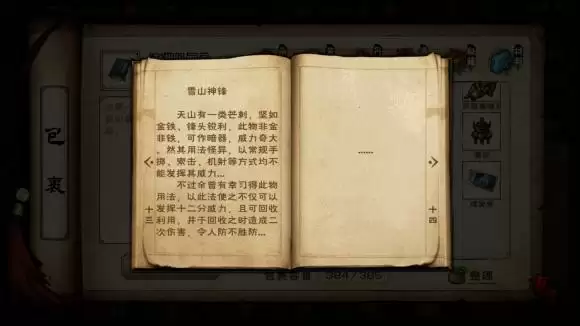 雪山神锋
天山有一类芒刺，坚如
金铁、锋头锐利，此物非金
非铁，可作暗器，威力奇大
。然其用法怪异，以常规手
掷、索击、机射等方式均不
能发挥其威力...
不过余曾有幸习得此物
用法，以此法使之不仅可以
发挥十二分威力，且可回收
利用，并于回收之时造成二
次伤害，令人防不胜防...
十三
......
十四
包裹